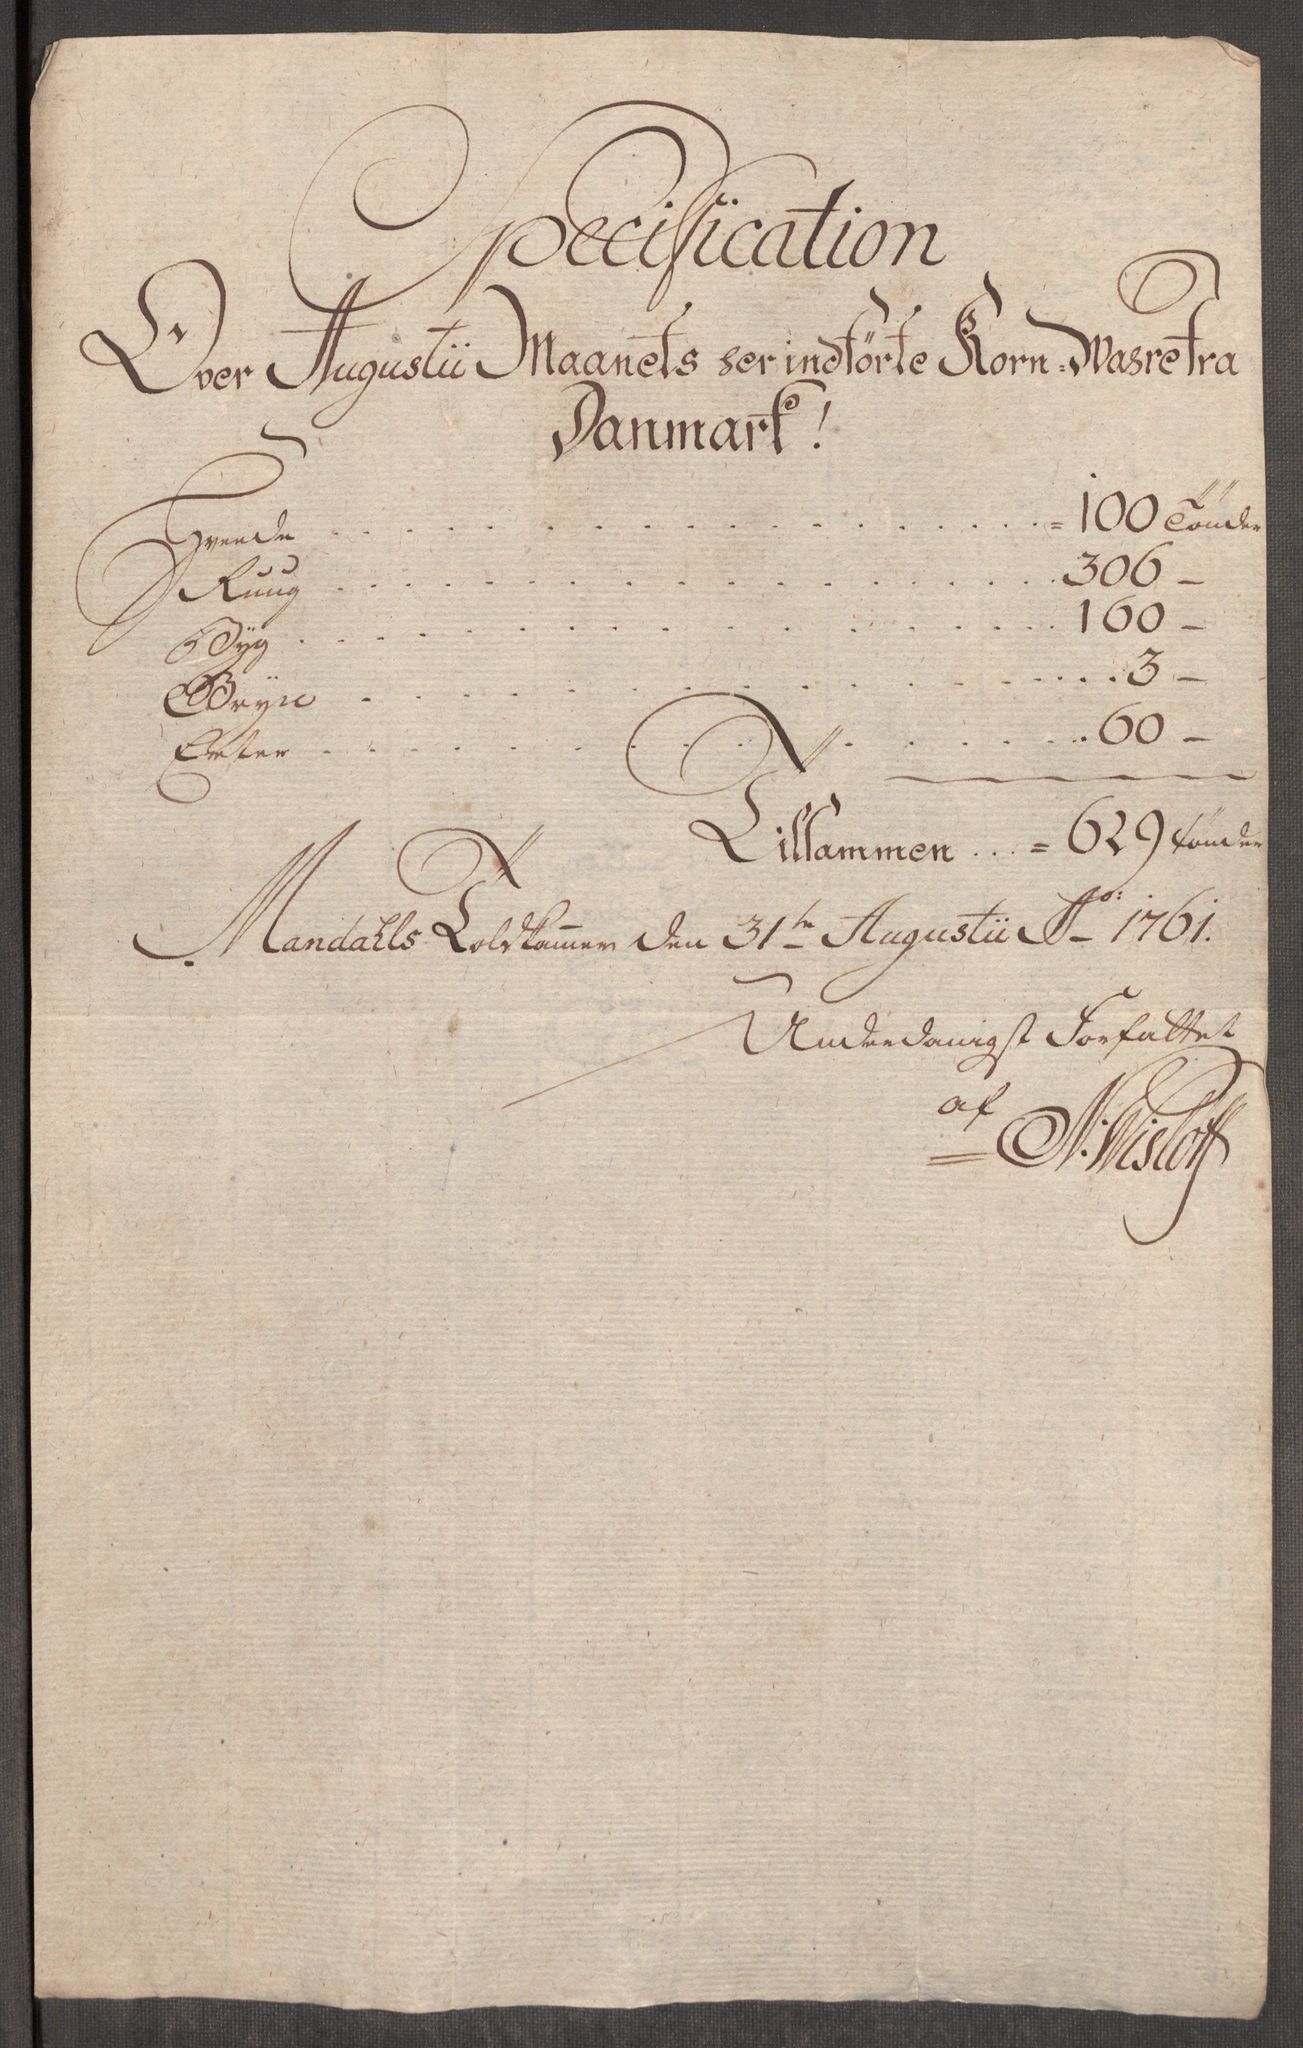 Specification
Over Augustii Maanets her indførte Korn-Wahre fra
Danmark!
Hveede . . . = 100 Tönder
Ruug . . . 306 —
Byg . . . 160 —
Gryn . . . 3 —
Erter . . . 60 —
Tilsammen . . = 629 tönder
Mandahls Toldkammer den 31te Augustii Ao: 1761.
Underdanigst Forfattet
af N: Wisløff